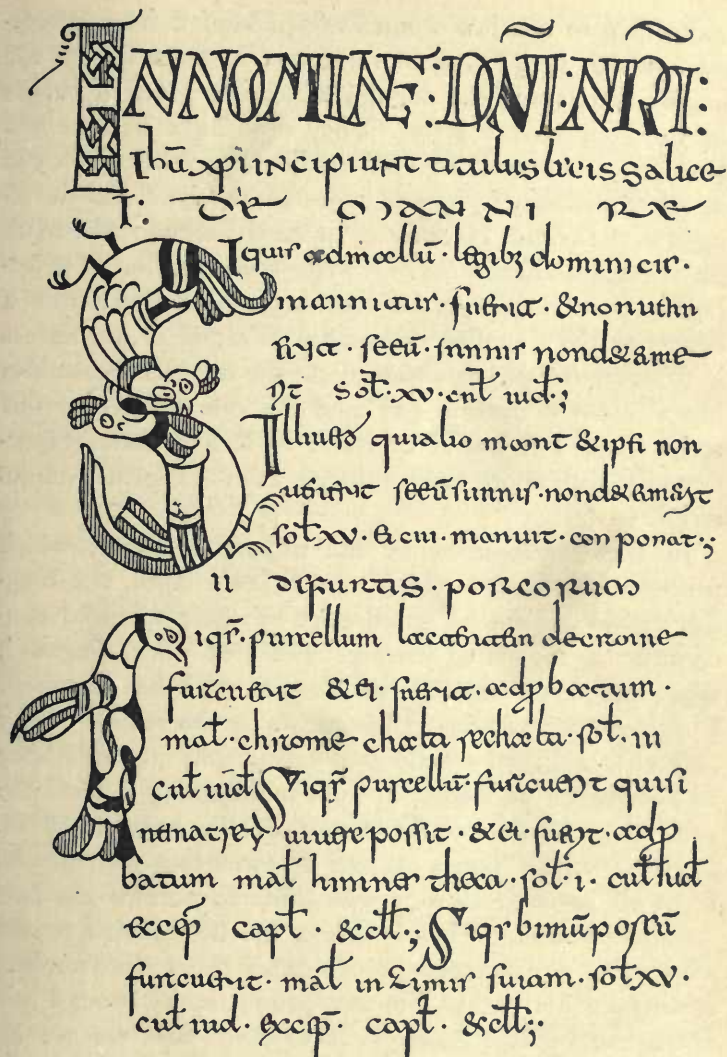 IN NOMINE: DÑI: NR̃I:
Ihū xpi incipiunt titulus legis salice
I: DE MANNIRE
Siquis ad mallū· legibꝫ dominicis·
mannitus· fuerit· & non
rit· seeū· sunnis non
rit sol̄· xv· cul̄ iud̄·;
qui alio manit & ipsi non
uenerit seeū sunnis· non
sol̄ xv· & cui manuit· conponat·;
II DE FURTIS· PORCORUM
Siqr̄· purcellum lactantem de crame
furauerit & ei· fuerit· adpbatum·
mal̄· chrome chalta rechalta· sol̄· III
cul̄ iud̄ Siqr̄ purcellū· furauerit qui si
ne matre uiuere possit· & ei· fuerit· adp
batum mal̄ himnes theca· sol̄· I· cul̄ iud̄
excep̄ capl̄· & dl̄l·; Siqr bimū porcū
furauerit· mal̄ in zimis suiam· sol̄ xv·
cul̄ iud· excep̄· capl̄· & dl̄l·;